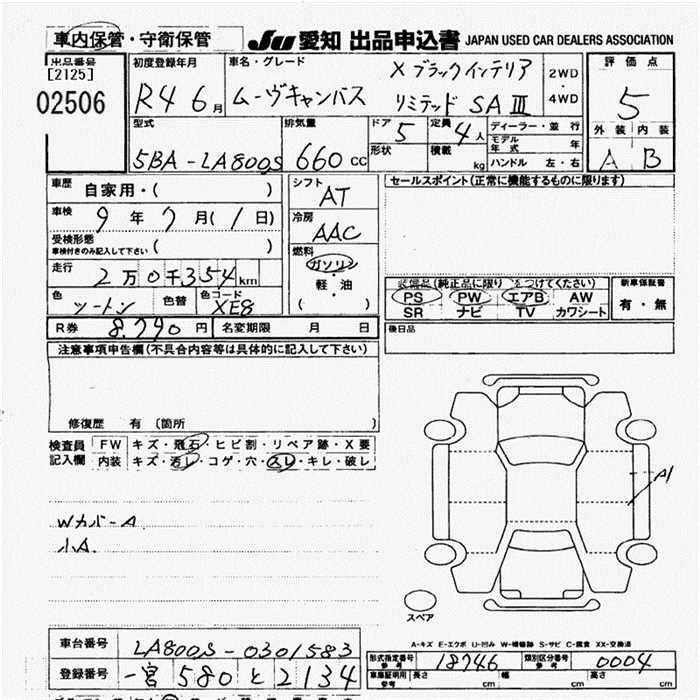 車内保管・守衛保管
JU 愛知 出品申込書 JAPAN USED CAR DEALERS ASSOCIATION
出品番号 初度登録年月 車名・グレード 評価点
[2125]
02506
R4 6月
ムーヴキャンバス
X ブラックインテリア
リミテッド SA III
2WD
・
4WD
5
外装 内装
A B
型式 排気量 ドア 定員 ディーラー・並行
5BA-LA800S 660 CC 5 4人
形状 積載 kg
モデル年式 年
ハンドル 左・右
車歴 自家用・( )
車検 9年7月(1日)
受検形態
車検付きのみ記入して下さい ( )
走行 2万0千354km
色 ツートン 色替 色コード XE8
R券 8,790円 名変期限 月 日
シフト
AT
冷房
AAC
燃料
ガソリン
・
軽・油
( )
セールスポイント(正常に機能するものに限ります)
装備品(純正品に限り○をつけてください) 新車保証書
PS PW エアB AW
SR ナビ TV カワシート
有・無
後日品
注意事項申告欄(不具合内容等は具体的に記入して下さい)
修復歴 有 〔箇所 〕
検査員記入欄
FW キズ・飛石・ヒビ割・リペア跡・X要
内装 キズ・汚レ・コゲ・穴・スレ・キレ・破レ
Wカバー-A
小A
A1
スペア
A-キズ E-エクボ U-凹み W-補修跡 S-サビ C-腐食 XX-交換済
車台番号 LA800S-0301583
登録番号 一宮 580 と 2134
形式指定番号 参考 18746 類別区分番号 参考 0004
車庫証明用 参考 長さ cm 幅 cm 高さ cm